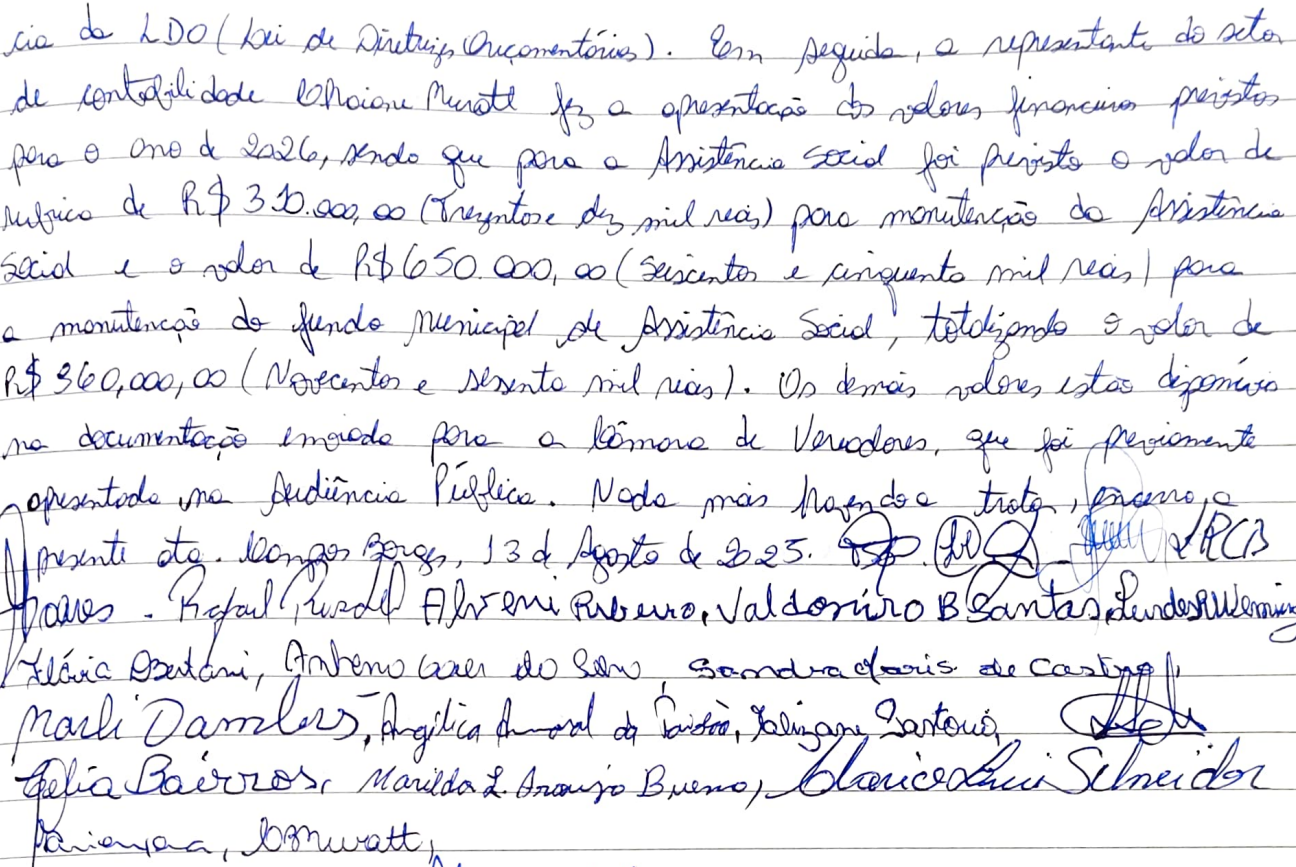 cia da LDO (Lei de Diretrizes Orçamentárias). Em seguida, a representante do setor
de contabilidade Muratt fez a apresentação dos valores financeiros previstos
para o ano de 2026, sendo que para a Assistência Social foi previsto o valor de
rubrica de R$ 310.000,00 (Trezentos e dez mil reais) para manutenção da Assistência
Social e o valor de R$ 650.000,00 (Seiscentos e cinquenta mil reais) para
a manutenção do fundo Municipal de Assistência Social, totalizando o valor de
R$ 960,000,00 (Novecentos e sessenta mil reais). Os demais valores estão disponíveis
na documentação enviada para a Câmara de Vereadores, que foi previamente
apresentada na Audiência Pública. Nada mais havendo a tratar, encerro, a
presente ata. Campos Borges, 13 de Agosto de 2025.
Rafael Alveni Ribeiro, Valdomiro B Santas,
Flávia Antenio Sandra de Castro,
Marli Angélica Amaral da
Bairros, Marilda L. Araujo Bueno, Clarice Schneider